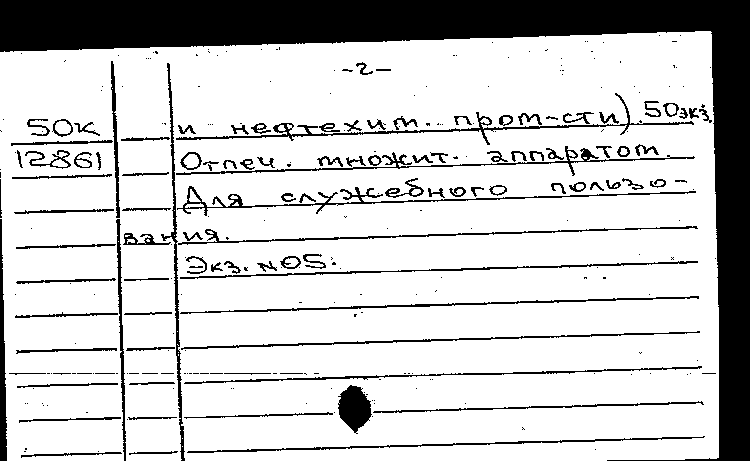 -2-
50к и нефтехим. пром-сти) 50экз.
12861 Отпеч. множит. аппаратом.
Для служебного пользо-
вания.
Экз. №05.